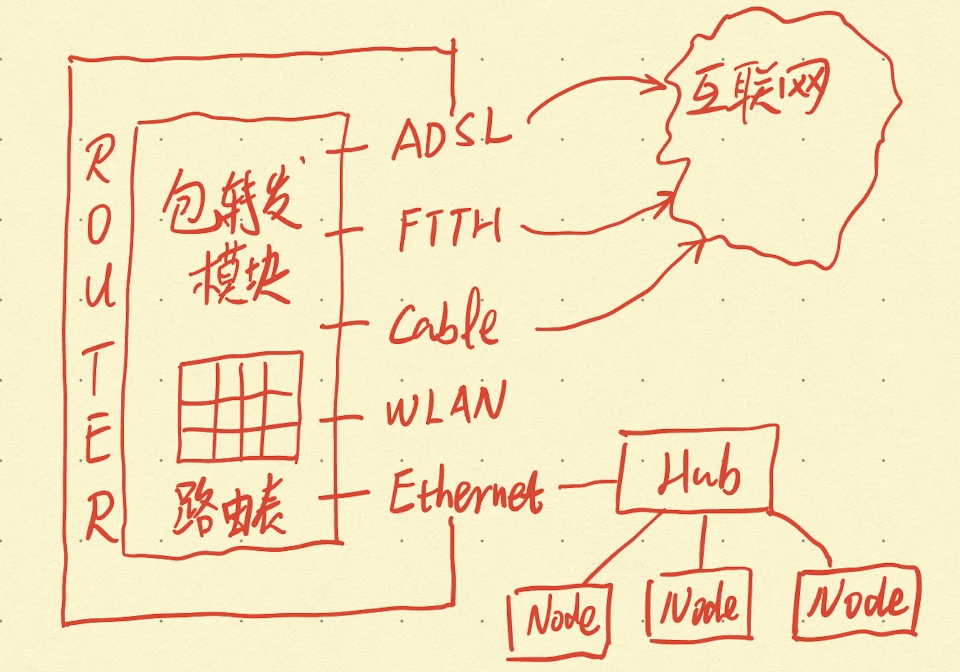 ROUTER
包转发
模块
路由表
ADSL
FTTH
Cable
WLAN
Ethernet
互联网
Hub
Node
Node
Node